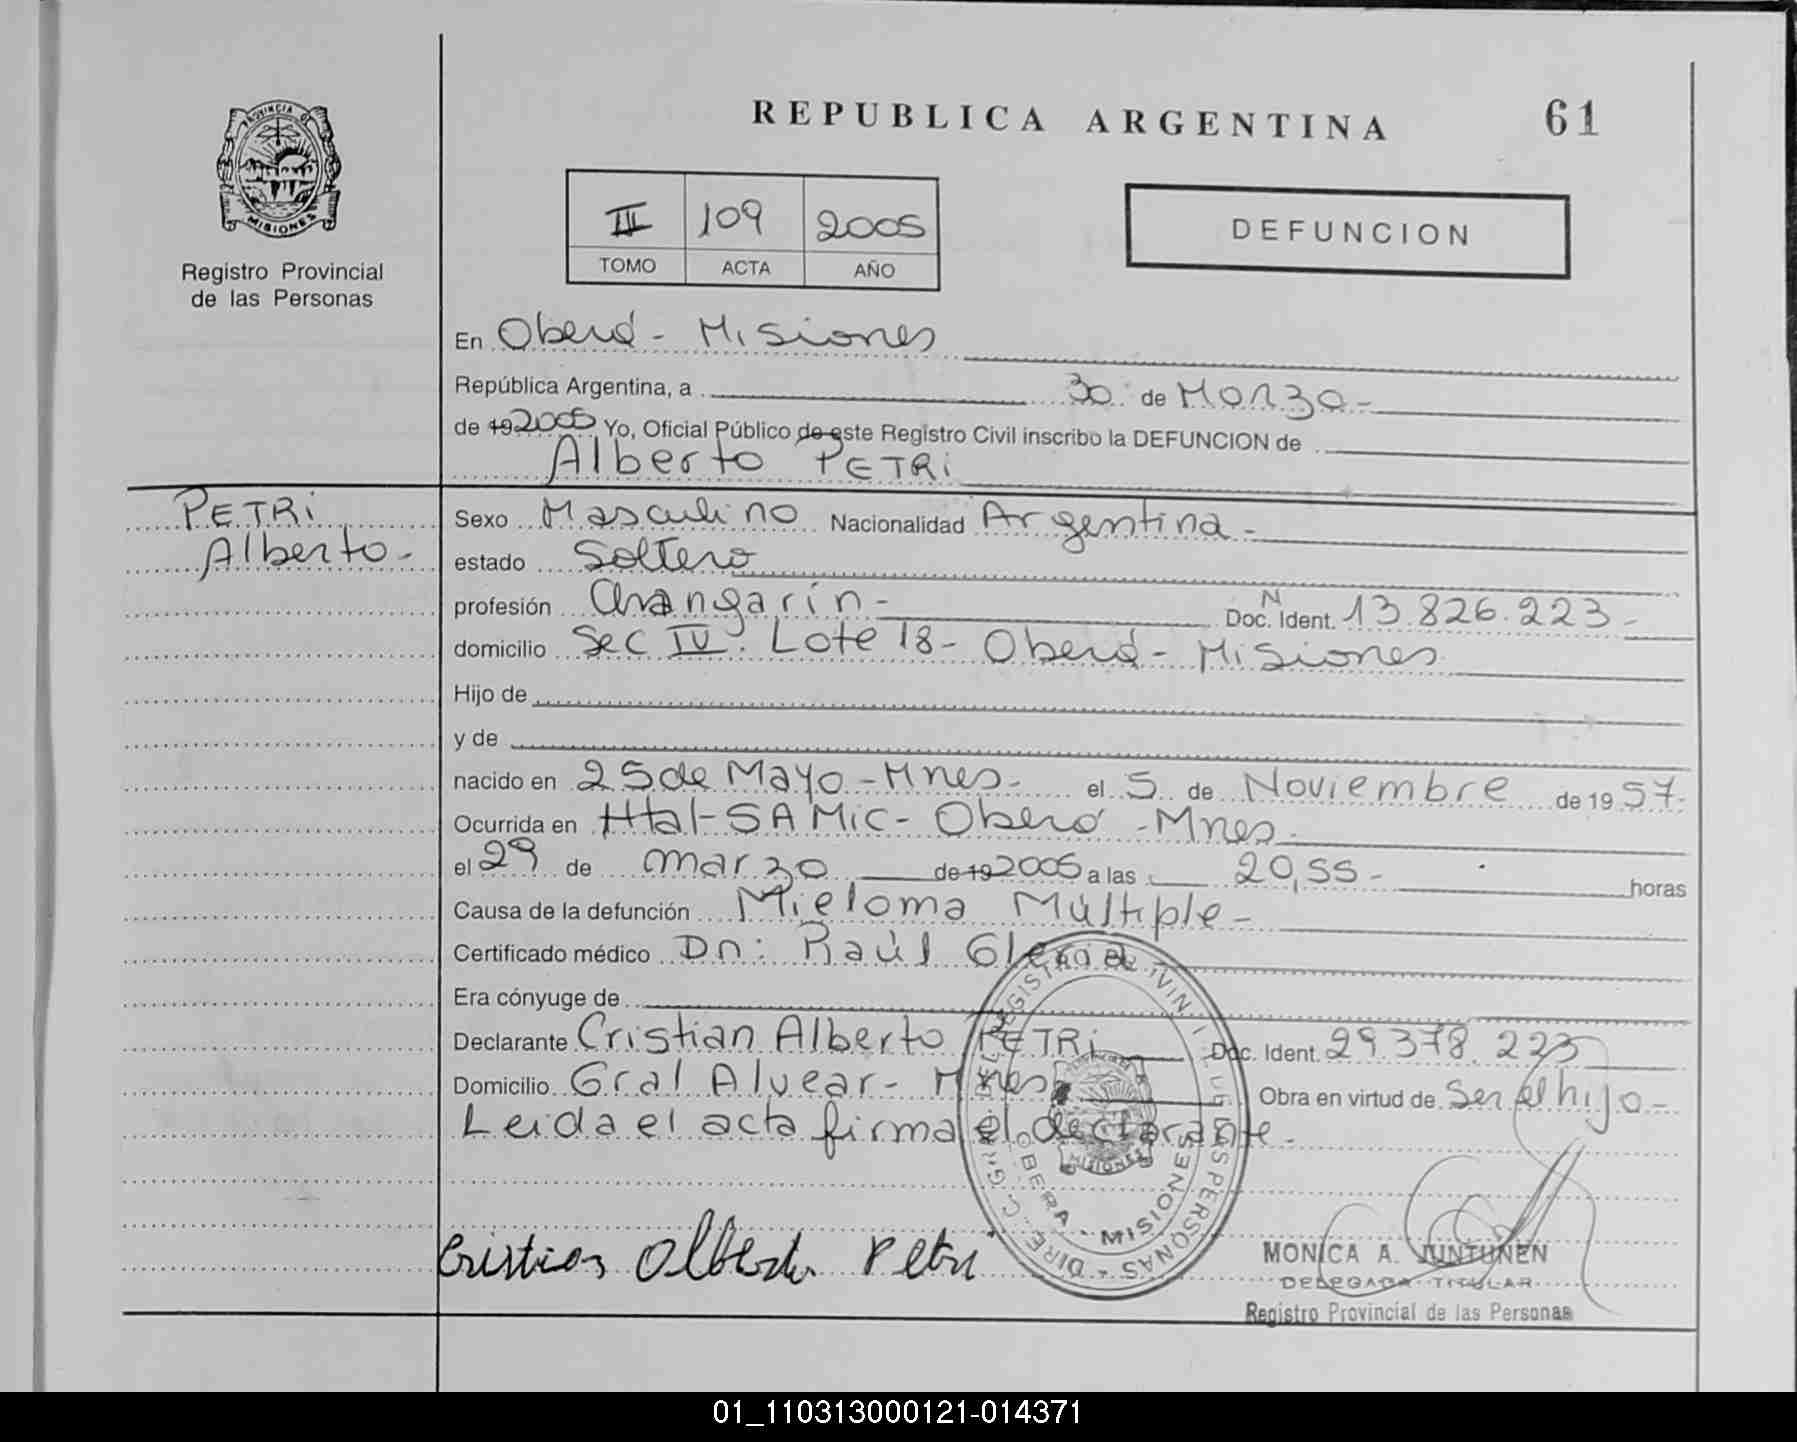 REPUBLICA ARGENTINA
61
PROVINCIA DE
MISIONES
Registro Provincial
de las Personas
III 109 2005
TOMO ACTA AÑO
DEFUNCION
En Oberá - Misiones
República Argentina, a 30 de Marzo -
de 19 2005 Yo, Oficial Público de este Registro Civil inscribo la DEFUNCION de
Alberto PETRI
PETRI
Alberto -
Sexo Masculino Nacionalidad Argentina -
estado Soltero
profesión Changarín - Doc. Ident. N 13.826.223 -
domicilio Sec IV. Lote 18 - Oberá - Misiones
Hijo de
y de
nacido en 25 de Mayo - Mnes - el 5 de Noviembre de 19 57.
Ocurrida en Htal - SAMic - Oberá - Mnes -
el 29 de marzo de 19 2005 a las 20,55 - horas
Causa de la defunción Mieloma Múltiple -
Certificado médico Dr: Raúl
Era cónyuge de
Declarante Cristian Alberto PETRI Doc. Ident. 29.378.223
Domicilio Gral Alvear - Mnes Obra en virtud de Ser el hijo -
Leida el acta firma el declarante -
OBERA - MISIONES
MISIONES
Cristian Alberto Petri
MONICA A. JUNTUNEN
DELEGADA TITULAR
Registro Provincial de las Personas
01_110313000121-014371